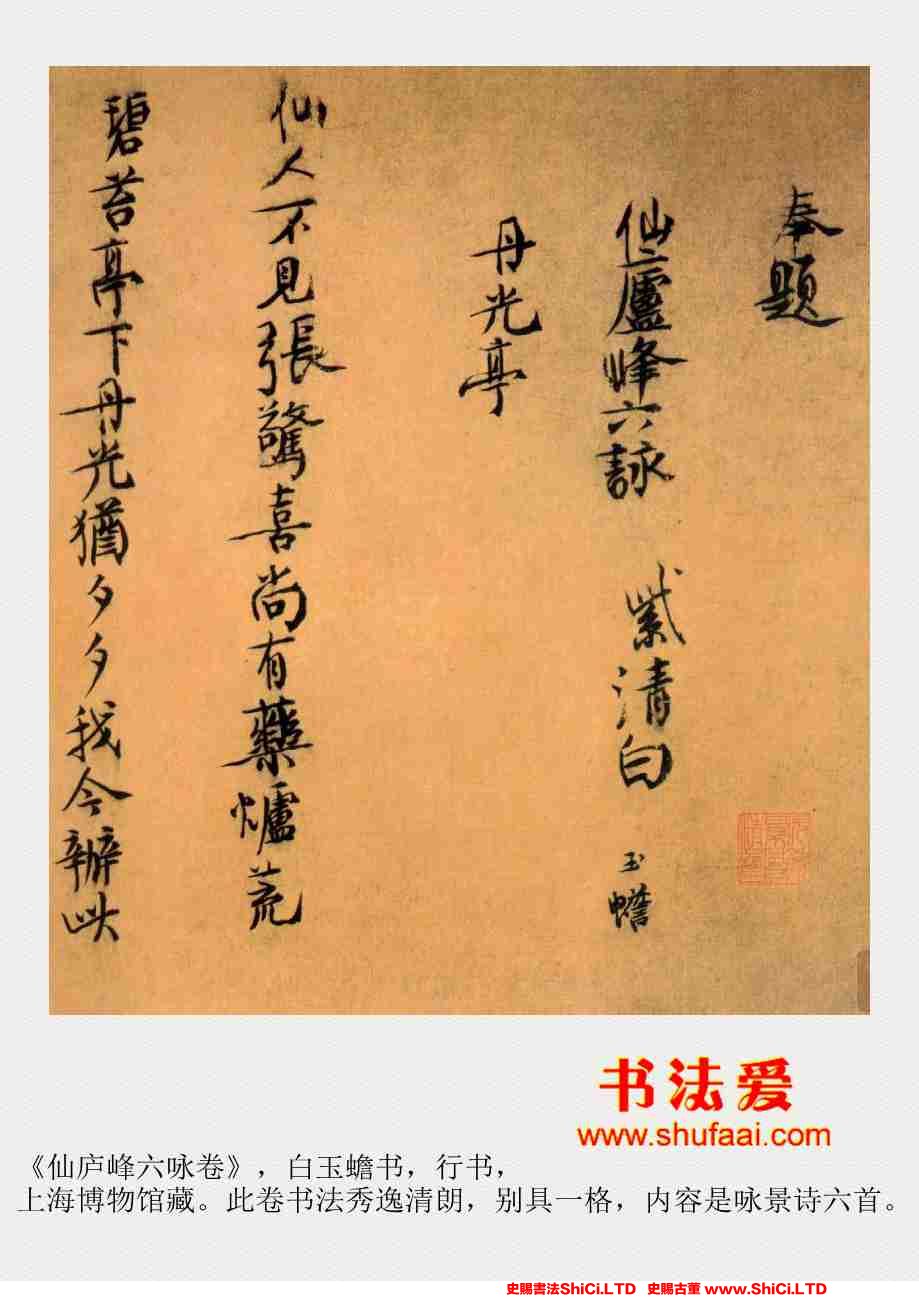 奉題
仙廬峰六詠 紫清白玉蟾
丹光亭
仙人不見張驚喜尚有藥爐荒
碧苔亭下丹光猶夕夕我今辦此
书法爱
www.shufaai.com
《仙庐峰六咏卷》，白玉蟾书，行书，
上海博物馆藏。此卷书法秀逸清朗，别具一格，内容是咏景诗六首。
史賜書法ShiCi.LTD 史賜古董 www.ShiCi.LTD